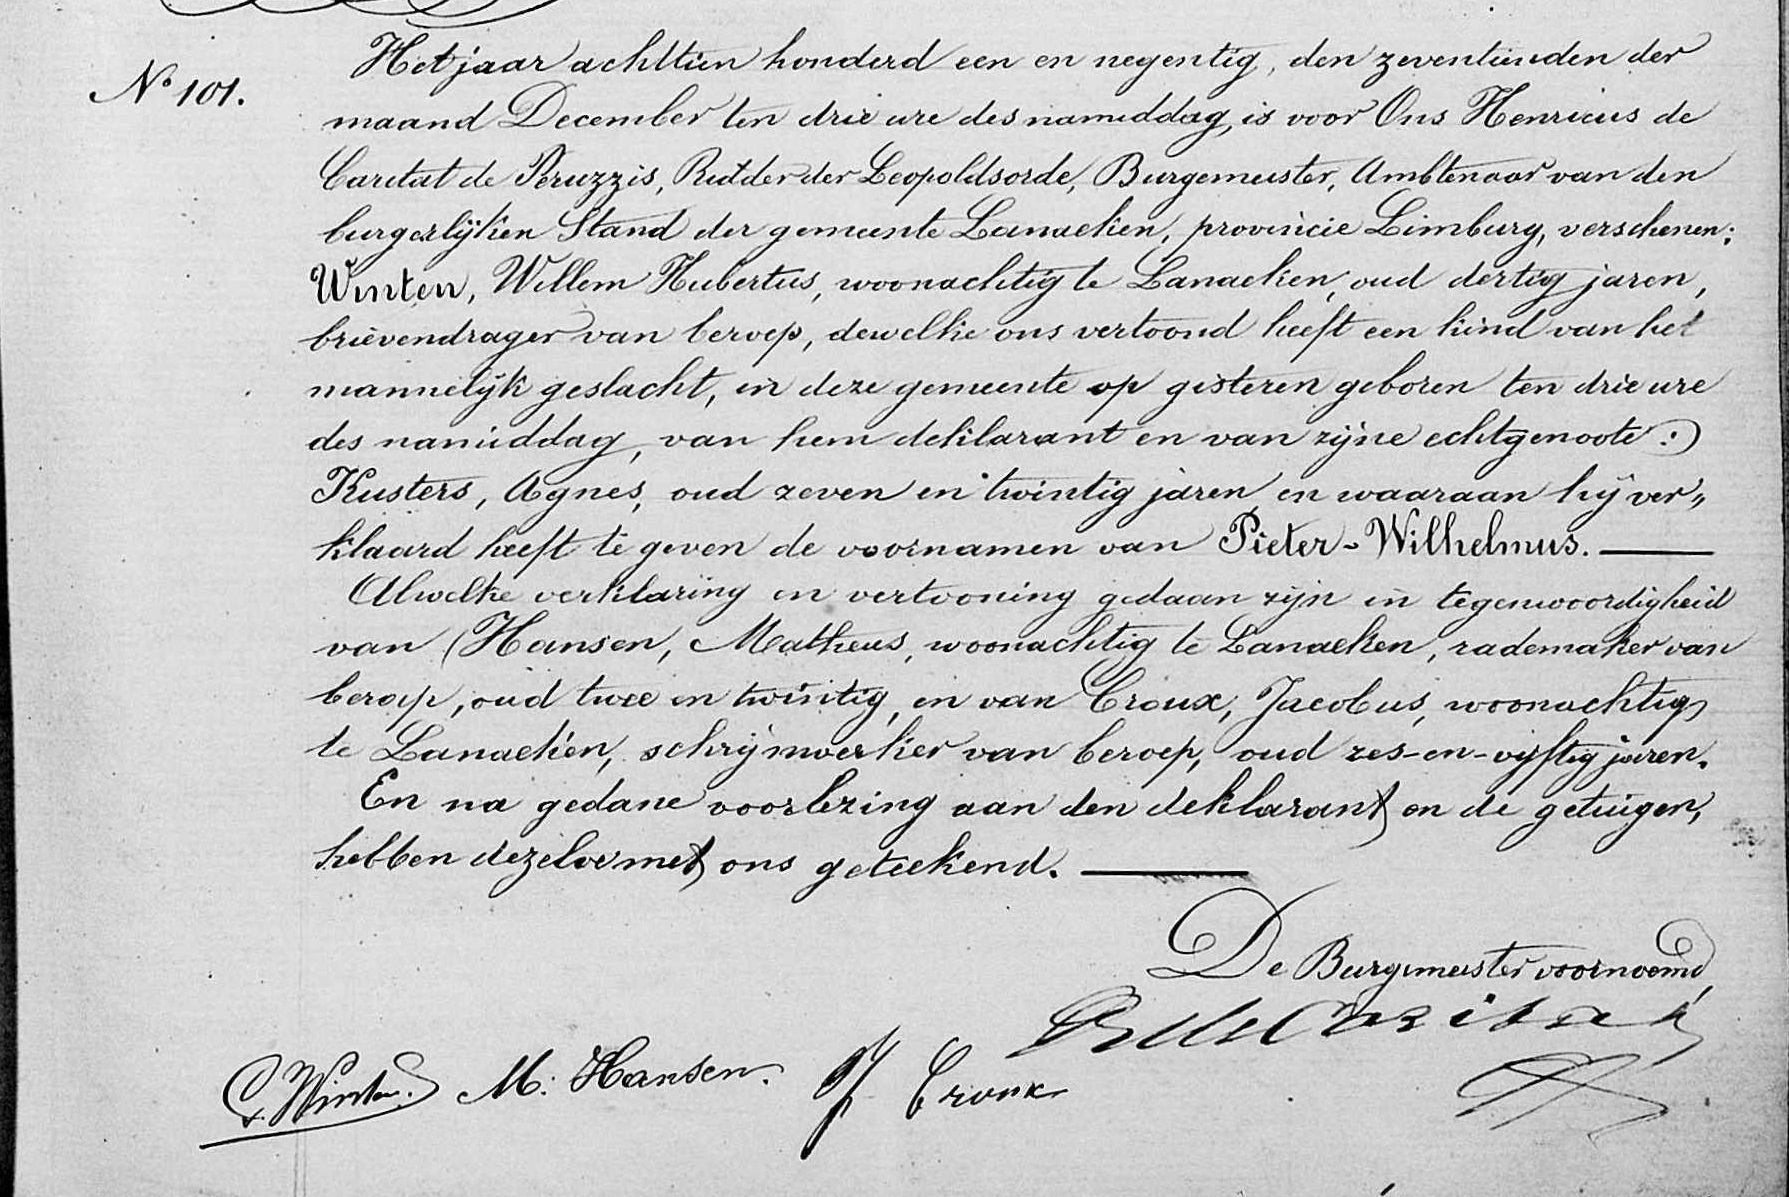 Nº 101.
Het jaar achttien honderd een en negentig, den zeventienden der
maand December ten drie ure des namiddag, is voor Ons Henricus de
Caritat de Peruzzis, Ridder der Leopoldsorde, Burgemeester, Ambtenaar van den
burgerlijken Stand der gemeente Lanaeken, provincie Limburg, verschenen:
Winten, Willem Hubertus, woonachtig te Lanaeken, oud dertig jaren,
brievendrager van beroep, dewelke ons vertoond heeft een kind van het
mannelijk geslacht, in deze gemeente op gisteren geboren ten drie ure
des namiddag, van hem deklarant en van zijne echtgenoote :)
Kusters, Agnes, oud zeven en twintig jaren en waaraan hij ver„
klaard heeft te geven de voornamen van Pieter-Wilhelmus.
Alwelke verklaring en vertooning gedaan zijn in tegenwoordigheid
van Hansen, Matheus, woonachtig te Lanaeken, rademaker van
beroep, oud twee en twintig, en van Croux, Jacobus, woonachtig
te Lanaeken, schrijnwerker van beroep, oud zes-en-vijftig jaren.
En na gedane voorlezing aan den deklarant en de getuigen,
hebben dezelve met ons geteekend.
De Burgemeester voornoemd,
de Caritat
Winten. M. Hansen. J Croux